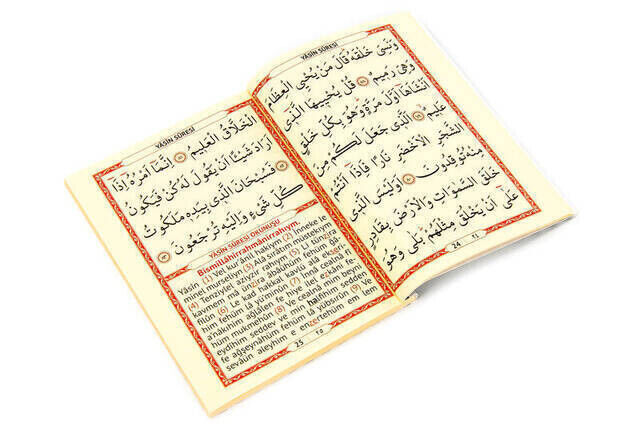 YÂSÎN SÛRESİ
وَنَسِىَ خَلْقَهُ قَالَ مَنْ يُحْيِى الْعِظَامَ
وَهِىَ رَمِيمٌ ﴿٧٨﴾ قُلْ يُحْيِيهَا الَّذِى
اَنْشَاَهَا اَوَّلَ مَرَّةٍ وَهُوَ بِكُلِّ خَلْقٍ
عَلِيمٌ ﴿٧٩﴾ اَلَّذِى جَعَلَ لَكُمْ مِنَ
الشَّجَرِ الْاَخْضَرِ نَارًا فَاِذَا اَنْتُمْ
مِنْهُ تُوقِدُونَ ﴿٨٠﴾ اَوَلَيْسَ الَّذِى
خَلَقَ السَّمٰوَاتِ وَالْاَرْضَ بِقَادِرٍ
عَلٰى اَنْ يَخْلُقَ مِثْلَهُمْ بَلٰى وَهُوَ
24 ٢٤
YÂSÎN SÛRESİ
الْخَلَّاقُ الْعَلِيمُ ﴿٨١﴾ اِنَّمَا اَمْرُهُ اِذَا
اَرَادَ شَيْئًا اَنْ يَقُولَ لَهُ كُنْ فَيَكُونُ
﴿٨٢﴾ فَسُبْحَانَ الَّذِى بِيَدِهِ مَلَكُوتُ
كُلِّ شَىْءٍ وَاِلَيْهِ تُرْجَعُونَ ﴿٨٣﴾
YÂSÎN SÛRESİ OKUNUŞU
Bismillâhirrahmânirrahıym.
Yâsîn (1) Vel kur'ânil hakiym (2) İnneke le
minel murseliyn (3) Alâ sırâtım müstekıym
(4) Tenziylel aziyzir rahıym (5) Li tünzira
kavmem mâ ünzira âbâühüm fehüm ğâ
filûn (6) Le kad hakkal kavlü alâ ekserihim
fehüm lâ yü'minûn (7) İnnâ cealnâ fî
a'nâkıhim ağlâlen fe hiye ilel ezkâni fe-
hüm mukmehûn (8) Ve cealnâ mim beyni
eydîhim seddev ve min halfihim sedden
fe ağşeynâhüm fehüm lâ yübsırûn (9) Ve
sevâün aleyhim e enzertehüm em lem
25 ٢٥